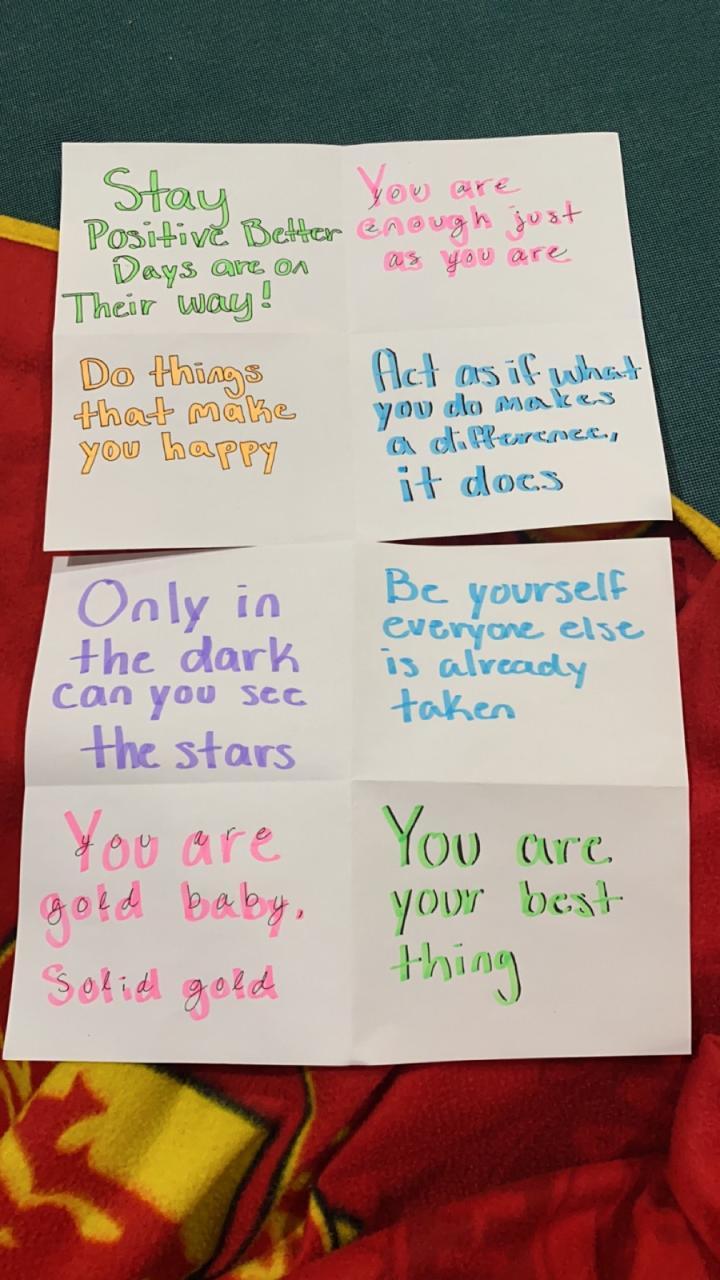 Stay
Positive Better
Days are on
Their way!
You are
enough just
as you are
Do things
that make
you happy
Act as if what
you do makes
a difference,
it does
Only in
the dark
can you see
the stars
Be yourself
everyone else
is already
taken
You are
gold baby.
Solid gold
You are
your best
thing